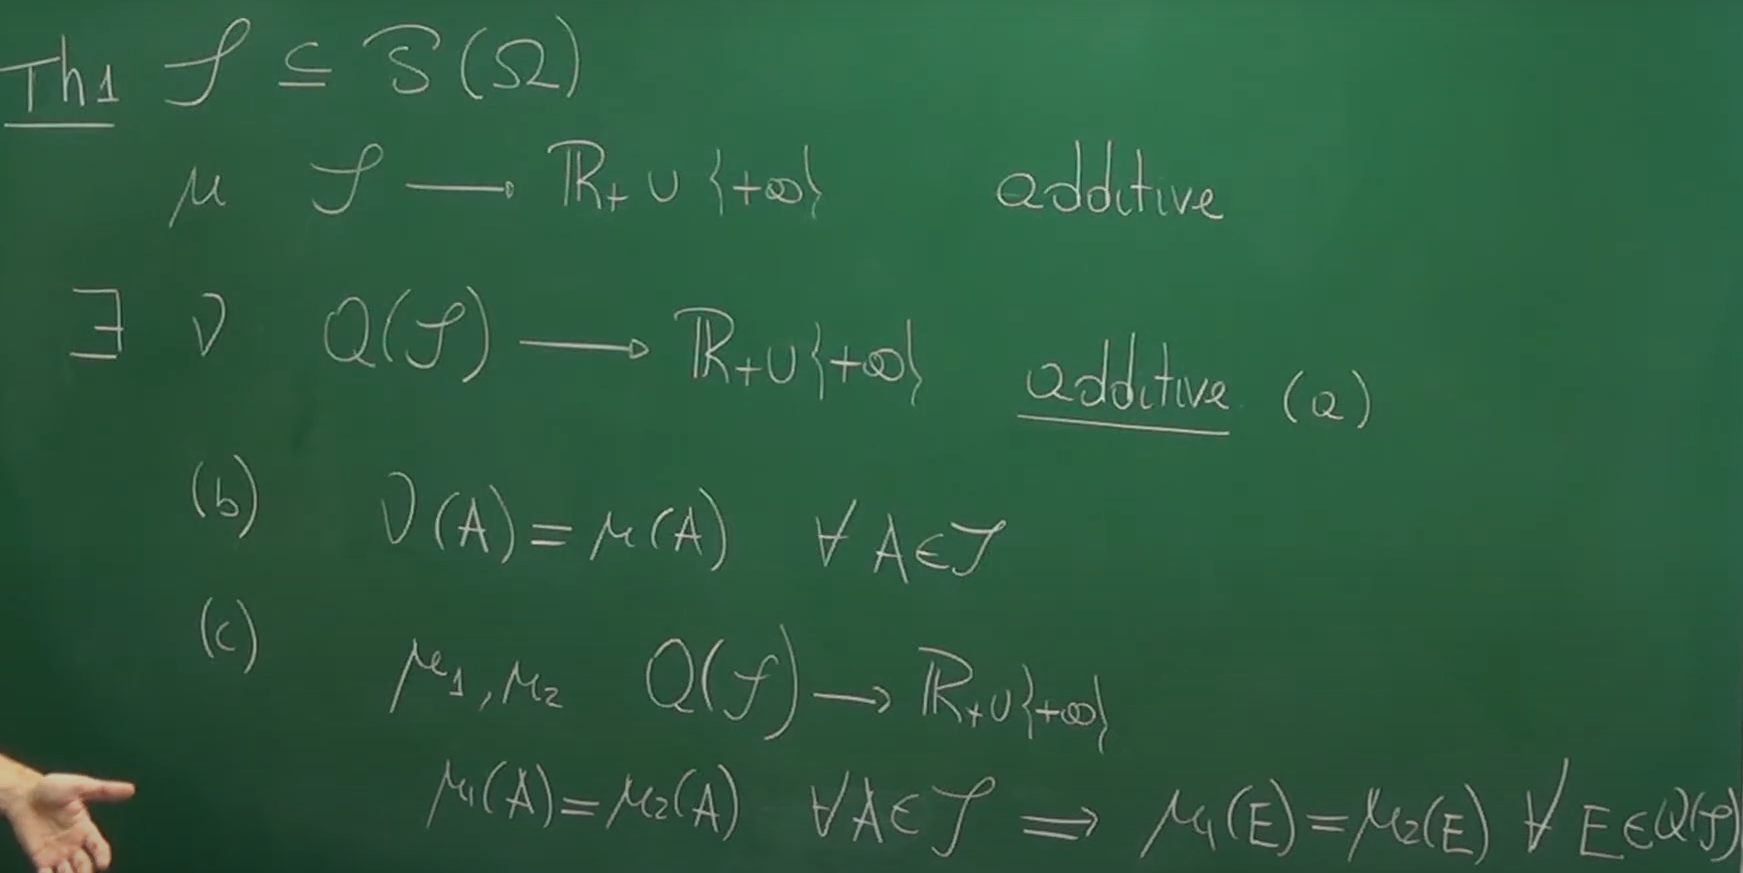 Th1 𝒮 ⊆ 𝒫(Ω)
μ 𝒮 → ℝ₊ ∪ {+∞} additive
∃ ν Q(𝒮) → ℝ₊ ∪ {+∞} additive (a)
(b) ν(A) = μ(A) ∀ A ∈ 𝒮
(c) μ₁, μ₂ Q(𝒮) → ℝ₊ ∪ {+∞}
μ₁(A) = μ₂(A) ∀ A ∈ 𝒮 ⟹ μ₁(E) = μ₂(E) ∀ E ∈ Q(𝒮)